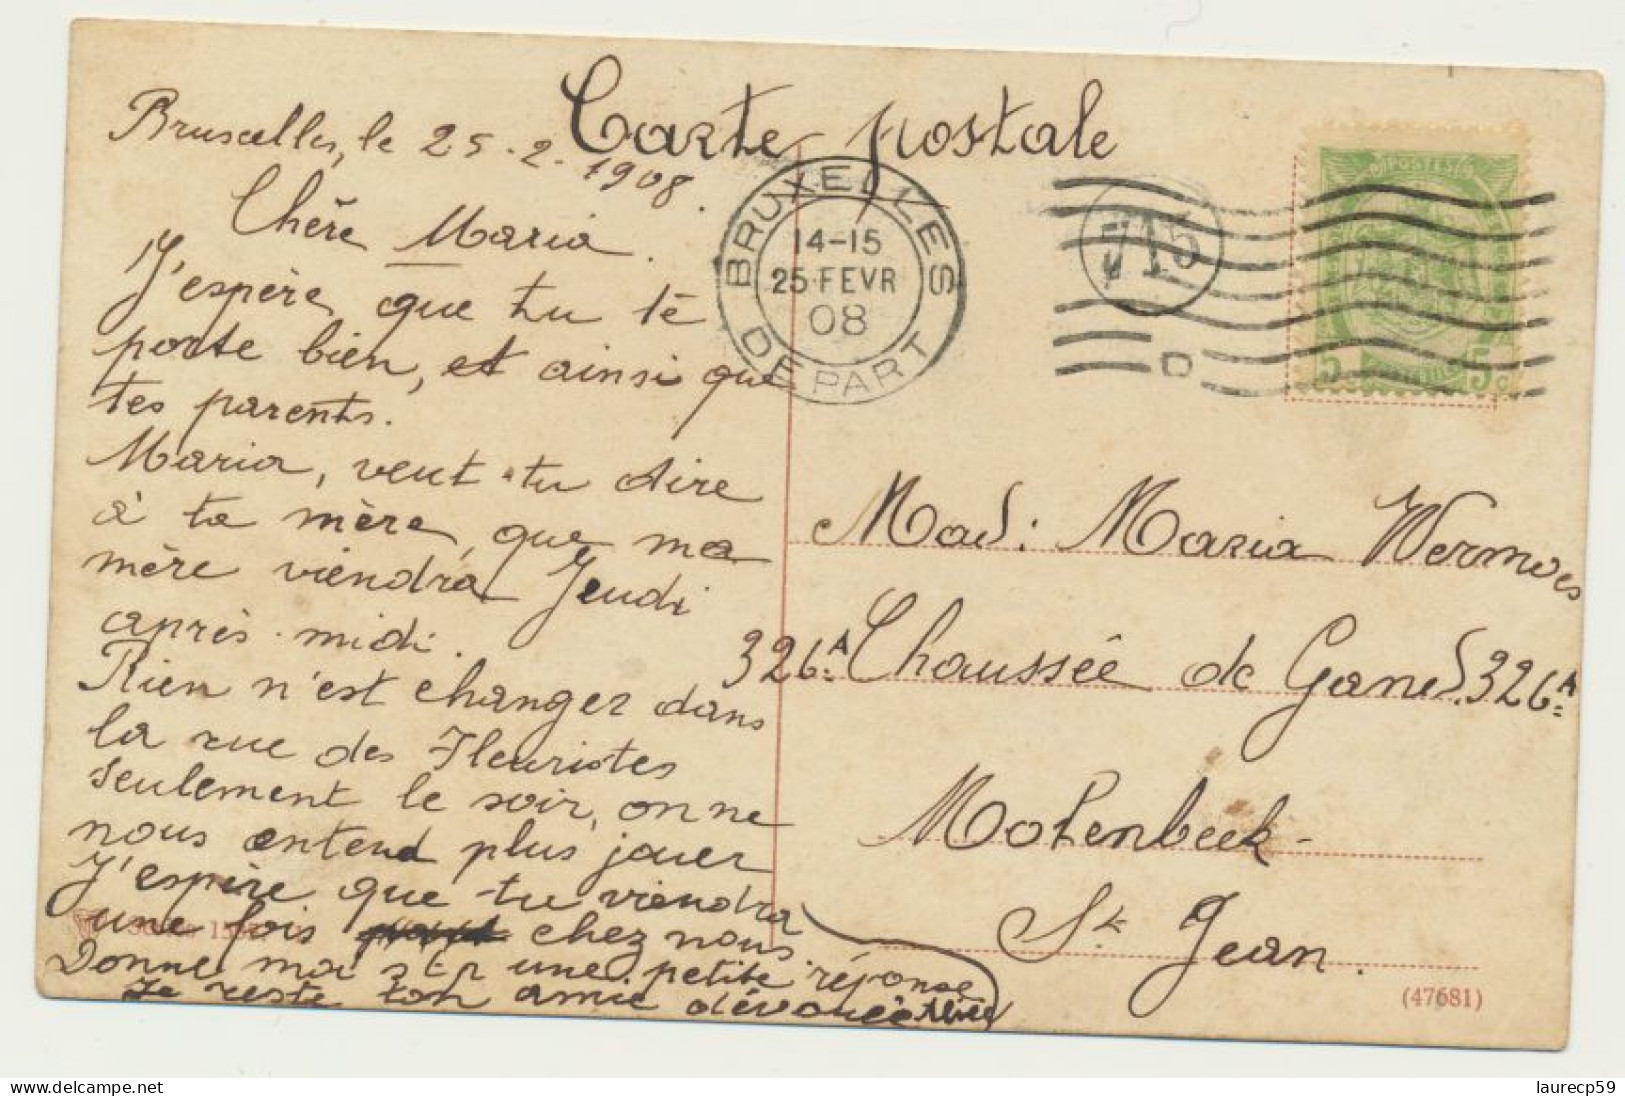 Carte postale
Bruxelles, le 25-2-1908.
Chère Maria.
J'espère que tu te
porte bien, et ainsi que
tes parents.
Maria, veut-tu dire
à ta mère, que ma
mère viendra Jeudi
après-midi.
Rien n'est changer dans
la rue des Fleuristes
seulement le soir, on ne
nous entend plus jouer
J'espère que tu viendra
une fois chez nous.
Donne moi s t p une petite réponse
Je reste ton amie dévouée
BRUXELLES
14-15
25 FEVR
08
DEPART
715
D
POSTES
5 5c
Mad: Maria Wermoes
326A= Chaussée de Gand 326A=
Molenbeek-
St Jean.
(47681)
www.delcampe.net
laurecp59